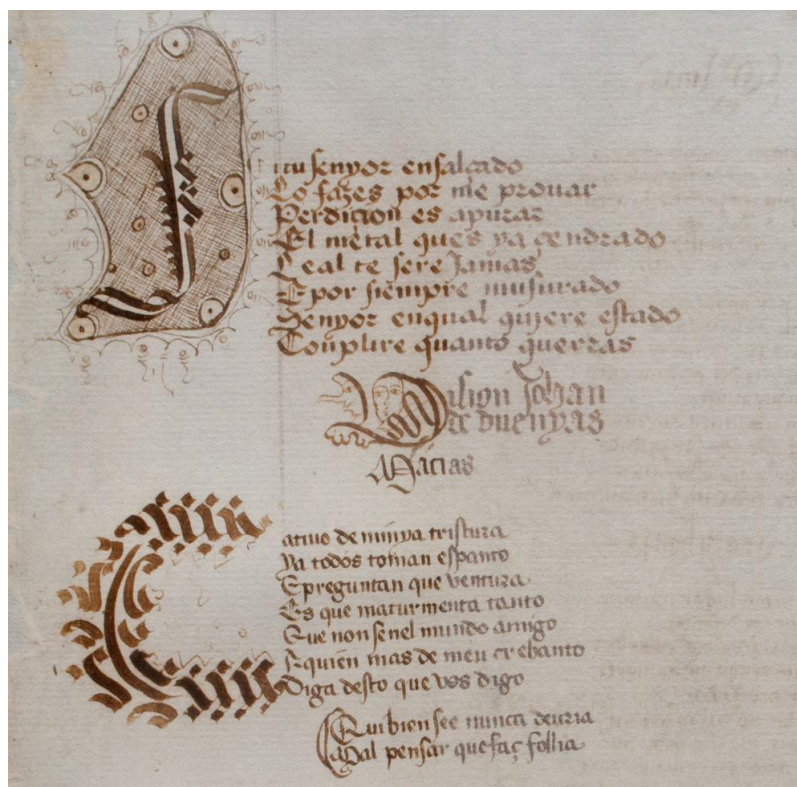 Si tu senyor ensalçado
Lo fazes por me prouar
Perdicion es apurar
El metal ques ya çendrado
Leal te sere Jamas
E por siempre musurado
Senyor enqual quiere estado
Conplire quanto querras
Johan
de duenyas
Macias
Catiuo de minya tristura
Ya todos toman espanto
E preguntan que ventura
Es que maturmenta tanto
Que non se nel mundo amigo
A quien mas de meu crebanto
Diga desto que vos digo
Qui bien see nunca deuria
Al pensar que faç follia